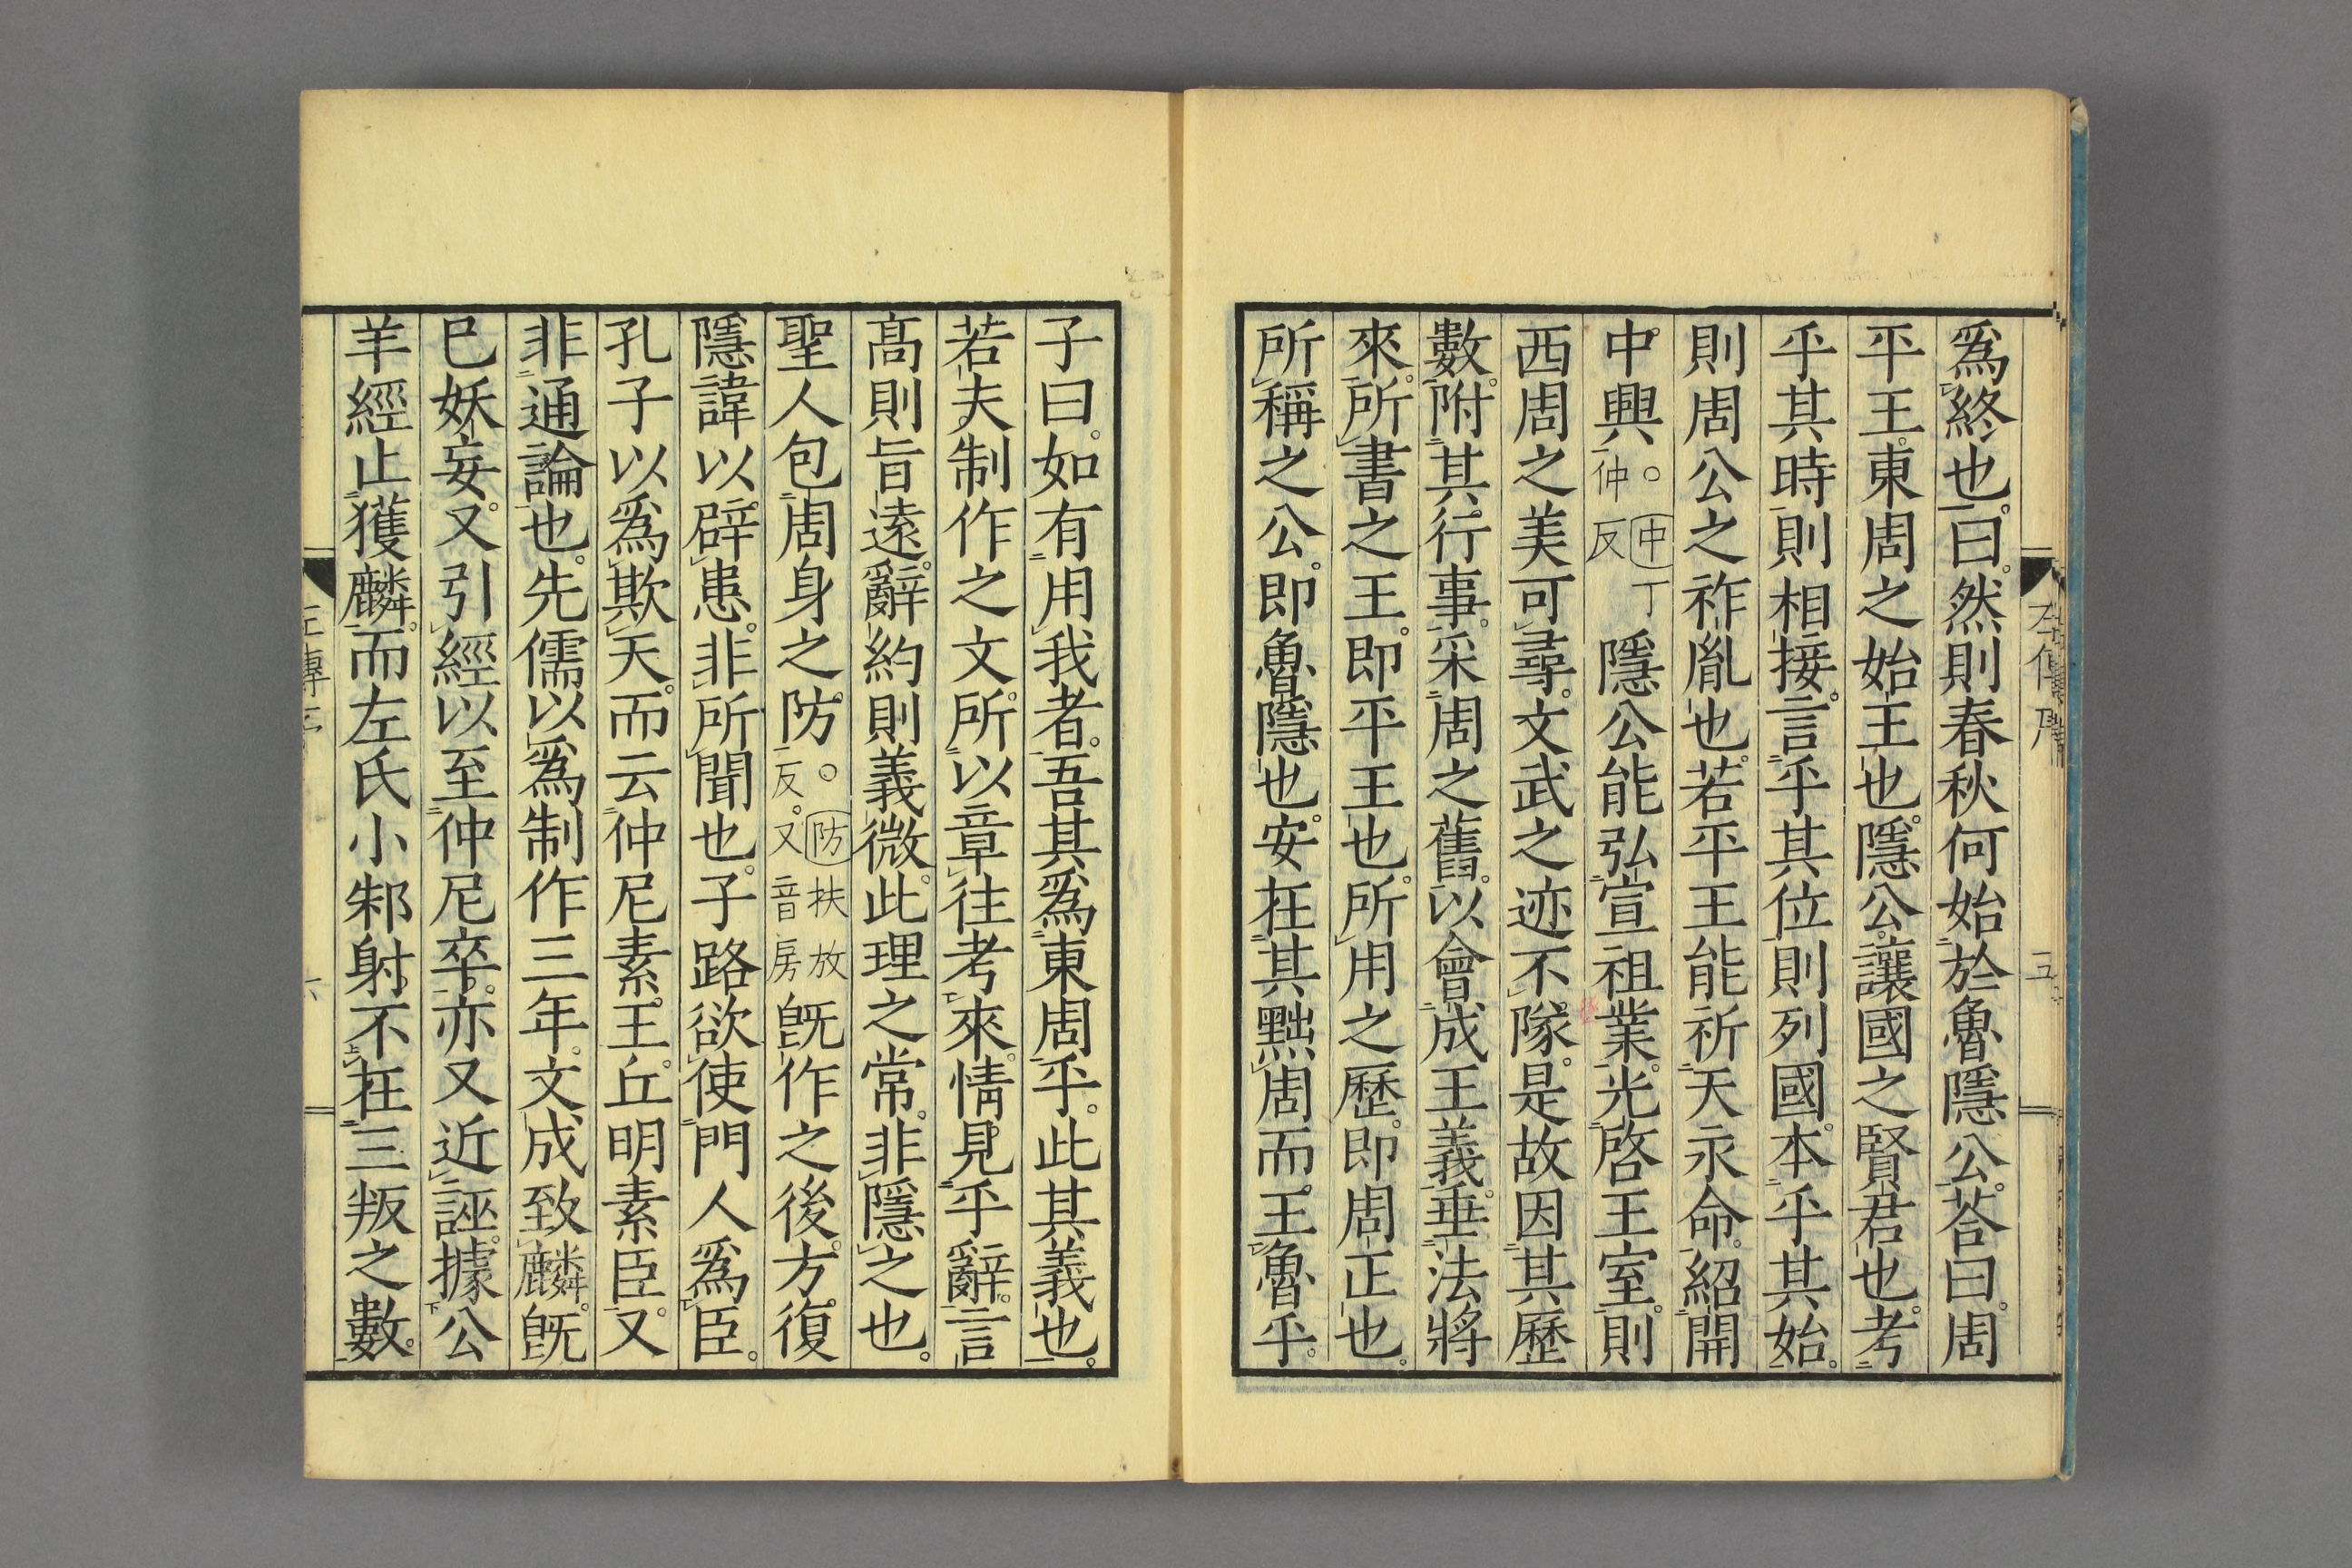 爲終也。曰。然則春秋何始於魯隱公。荅曰。周
平王。東周之始王也。隱公。讓國之賢君也。考
乎其時則相接。言乎其位則列國。本乎其始。
則周公之祚胤也。若平王能祈天永命。紹開
中興。○中丁仲反隱公能弘宣祖業。光啓王室。則
西周之美可尋。文武之迹不隊。是故因其歷
數。附其行事。采周之舊。以會成王義。垂法將
來。所書之王。即平王也。所用之歷。即周正也。
所稱之公。即魯隱也。安在其黜周而王魯乎。
子曰。如有用我者。吾其爲東周乎。此其義也。
若夫制作之文。所以章往考來。情見乎辭。言
髙則旨遠。辭約則義微。此理之常。非隱之也。
聖人包周身之防。○防扶放反。又音房旣作之後。方復
隱諱以辟患。非所聞也。子路欲使門人爲臣。
孔子以爲欺天。而云仲尼素王。丘明素臣。又
非通論也。先儒以爲制作三年。文成致麟。旣
已妖妄。又引經以至仲尼卒。亦又近誣。據公
羊經止獲麟。而左氏小邾射。不在三叛之數。
左傳序
五
左傳序
六